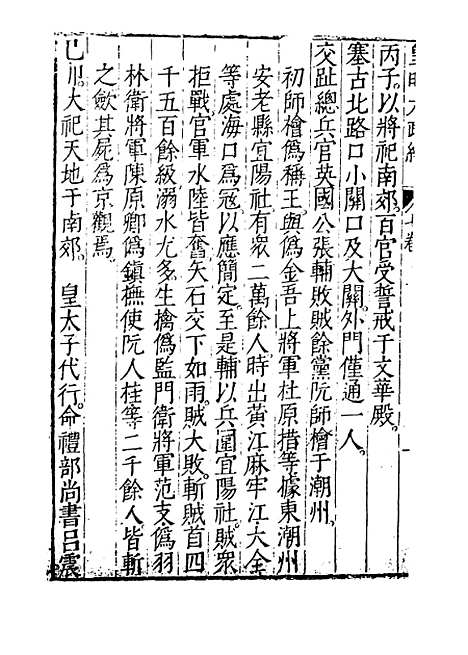 皇明大政纂 卷
丙子。以將祀南郊。百官受誓戒于文華殿。
塞古北路口小關口及大關。外門僅通一人。
交趾總兵官英國公張輔敗賊餘黨阮師檜于潮州。
初師檜僞稱王。與僞金吾上將軍杜原措等據東潮州
安老縣宜陽社有衆二萬餘人。時出黃江麻牢江大全
等處海口爲冦。以應簡定。至是輔以兵圍宜陽社。賊衆
拒戰。官軍水陸皆奮。矢石交下如雨。賊大敗。斬賊首四
千五百餘級。溺水尤多。生擒僞監門衛將軍范支僞羽
林衛將軍陳原卿僞鎮撫使阮人桂等二千餘人。皆斬
之。斂其屍爲京觀焉。
大祀天地于南郊。 皇太子代行。命禮部尚書呂震